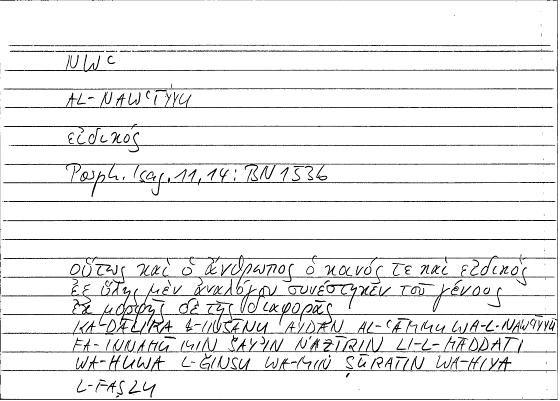 NWʿ
AL-NAWʿĪYU
εἰδικός
Porph. Isag. 11, 14: BN 153b
οὕτως καὶ ὁ ἄνθρωπος ὁ κοινός τε καὶ εἰδικὸς
ἐξ ὕλης μὲν ἀναλόγου συνέστηκεν τοῦ γένους
ἐκ μορφῆς δὲ τῆς διαφορᾶς
KA-ḎĀLIKA L-INSĀNU AYḌAN AL-ʿĀMMU WA-L-NAWʿĪYU
FA-INNAHŪ MIN ŠAYʾIN NAẒĪRIN LI-L-MĀDDATI
WA-HUWA L-ǦINSU WA-MIN ṢŪRATIN WA-HIYA
L-FAṢLU